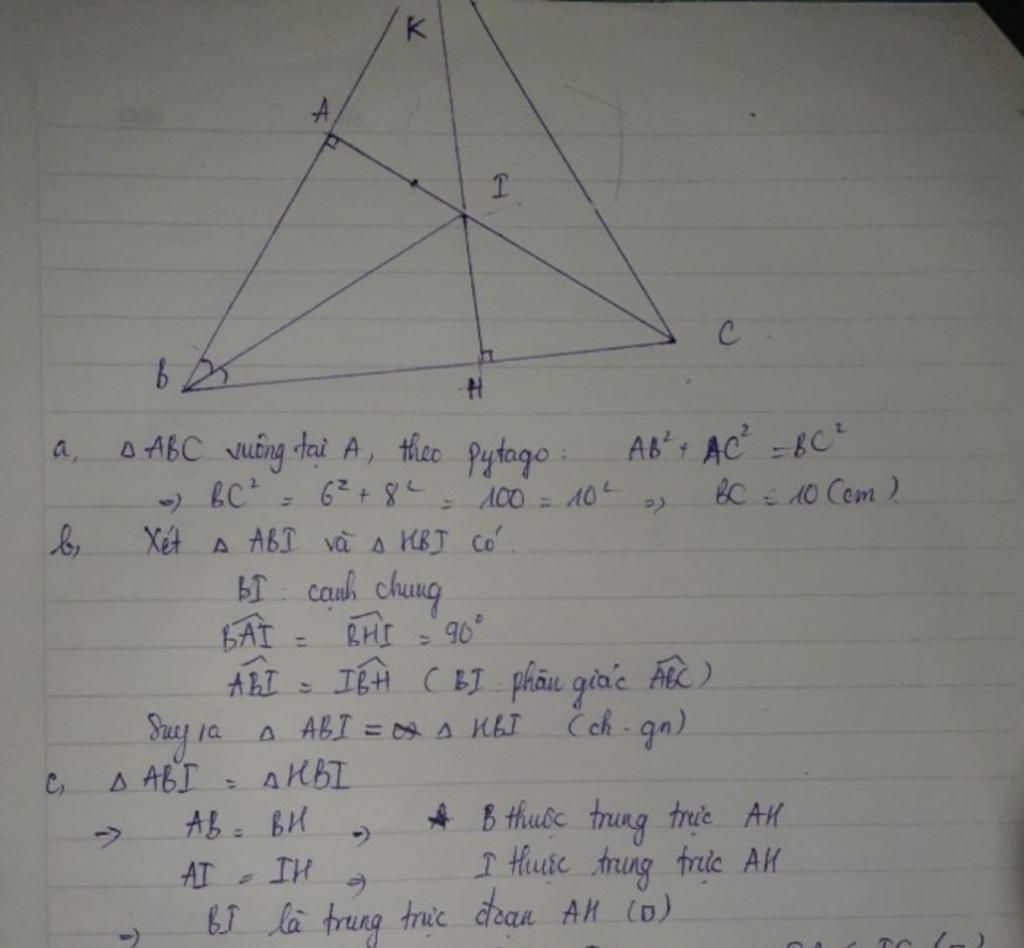 K
A
I
B
H
C
a, △ABC vuông tại A, theo pytago: AB² + AC² = BC²
=> BC² = 6² + 8² = 100 = 10² => BC = 10 (cm).
b, Xét △ ABI và △ HBI có:
BI: cạnh chung
BAI^ = BHI^ = 90°
ABI^ = IBH^ (BI: phân giác ABC^)
Suy ra △ ABI = △ HBI (ch - gn)
c, △ ABI = △ HBI
=> AB = BH => B thuộc trung trực AH
AI = IH => I thuộc trung trực AH
=> BI là trung trực đoạn AH (□)